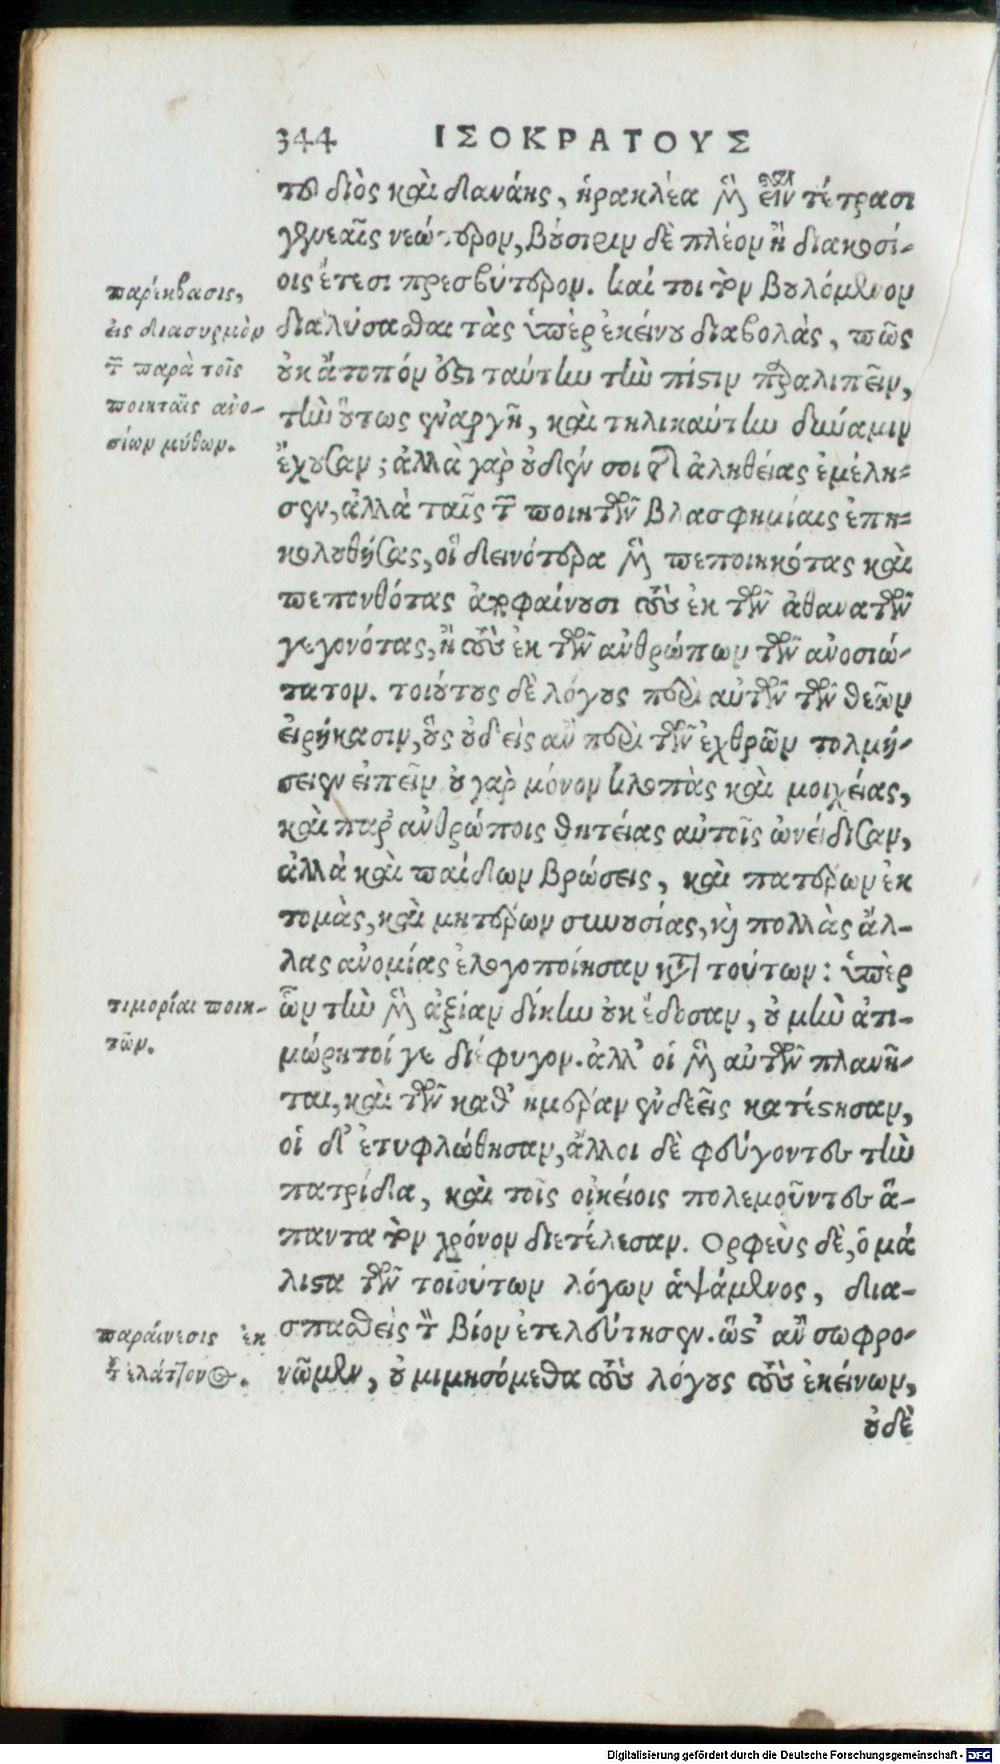 344 ΙΣΟΚΡΑΤΟΥΣ
τοῦ διὸς καὶ δανάης, ἡρακλέα μὲν εἶναι τέτρασι
γενεαῖς νεώτερον, βούσιριν δὲ πλέον ἢ διακοσί-
οις ἔτεσι πρεσβύτερον. καί τοι τὸν βουλόμενον
διαλύσασθαι τὰς ὑπὲρ ἐκείνου διαβολὰς, πῶς
οὐκ ἄτοπόν ἐστι ταύτην τὴν πίστιν παραλιπεῖν,
τὴν οὕτως ἐναργῆ, καὶ τηλικαύτην δύναμιν
ἔχουσαν; ἀλλὰ γὰρ οὐδέν σοι τῆς ἀληθείας ἐμέλη-
σεν, ἀλλὰ ταῖς τῶν ποιητῶν βλασφημίαις ἐπη-
κολούθησας, οἳ δεινότερα μὲν πεποιηκότας καὶ
πεπονθότας ἀποφαίνουσι τοὺς ἐκ τῶν ἀθανάτων
γεγονότας, ἢ τοὺς ἐκ τῶν ἀνθρώπων τῶν ἀνοσιω-
τάτον. τοιούτους δὲ λόγους περὶ αὐτῶν τῶν θεῶν
εἰρήκασιν, οὓς οὐδεὶς ἂν περὶ τῶν ἐχθρῶν τολμή-
σειεν εἰπεῖν οὐ γὰρ μόνον κλοπὰς καὶ μοιχείας,
καὶ παρ' ἀνθρώποις θητείας αὐτοῖς ὠνείδισαν,
ἀλλὰ καὶ παίδων βρώσεις, καὶ πατέρων ἐκ
τομὰς, καὶ μητέρων συνουσίας, καὶ πολλὰς ἄλ-
λας ἀνομίας ἐλογοποίησαν κατὰ τούτων: ὑπὲρ
ὧν τὴν μὲν ἀξίαν δίκην οὐκ ἔδοσαν, οὐ μὴν ἀτι-
μώρητοί γε διέφυγον. ἀλλ' οἱ μὲν αὐτῶν πλανῆ-
ται, καὶ τῶν καθ' ἡμέραν ἐνδεεῖς κατέστησαν,
οἱ δ' ἐτυφλώθησαν, ἄλλοι δὲ φεύγοντες τὴν
πατρίδα, καὶ τοῖς οἰκείοις πολεμοῦντες ἅ-
παντα τὸν χρόνον διετέλεσαν. Ορφεὺς δὲ, ὁ μά
λιστα τῶν τοιούτων λόγων ἁψάμενος, δια-
σπασθεὶς τὸν βίον ἐτελεύτησεν. ὥστ' ἂν σωφρο-
νῶμεν, οὐ μιμησόμεθα τοὺς λόγους τοὺς ἐκείνων,
οὐδὲ
παρέκβασις,
εἰς διασυρμὸν
τῶν παρὰ τοῖς
ποιηταῖς ἀνο-
σίων μύθων.
τιμορίαι ποιη-
τῶν.
παραίνεσις ἐκ
τοῦ ἐλάττονος.
Digitalisierung gefördert durch die Deutsche Forschungsgemeinschaft - DFG